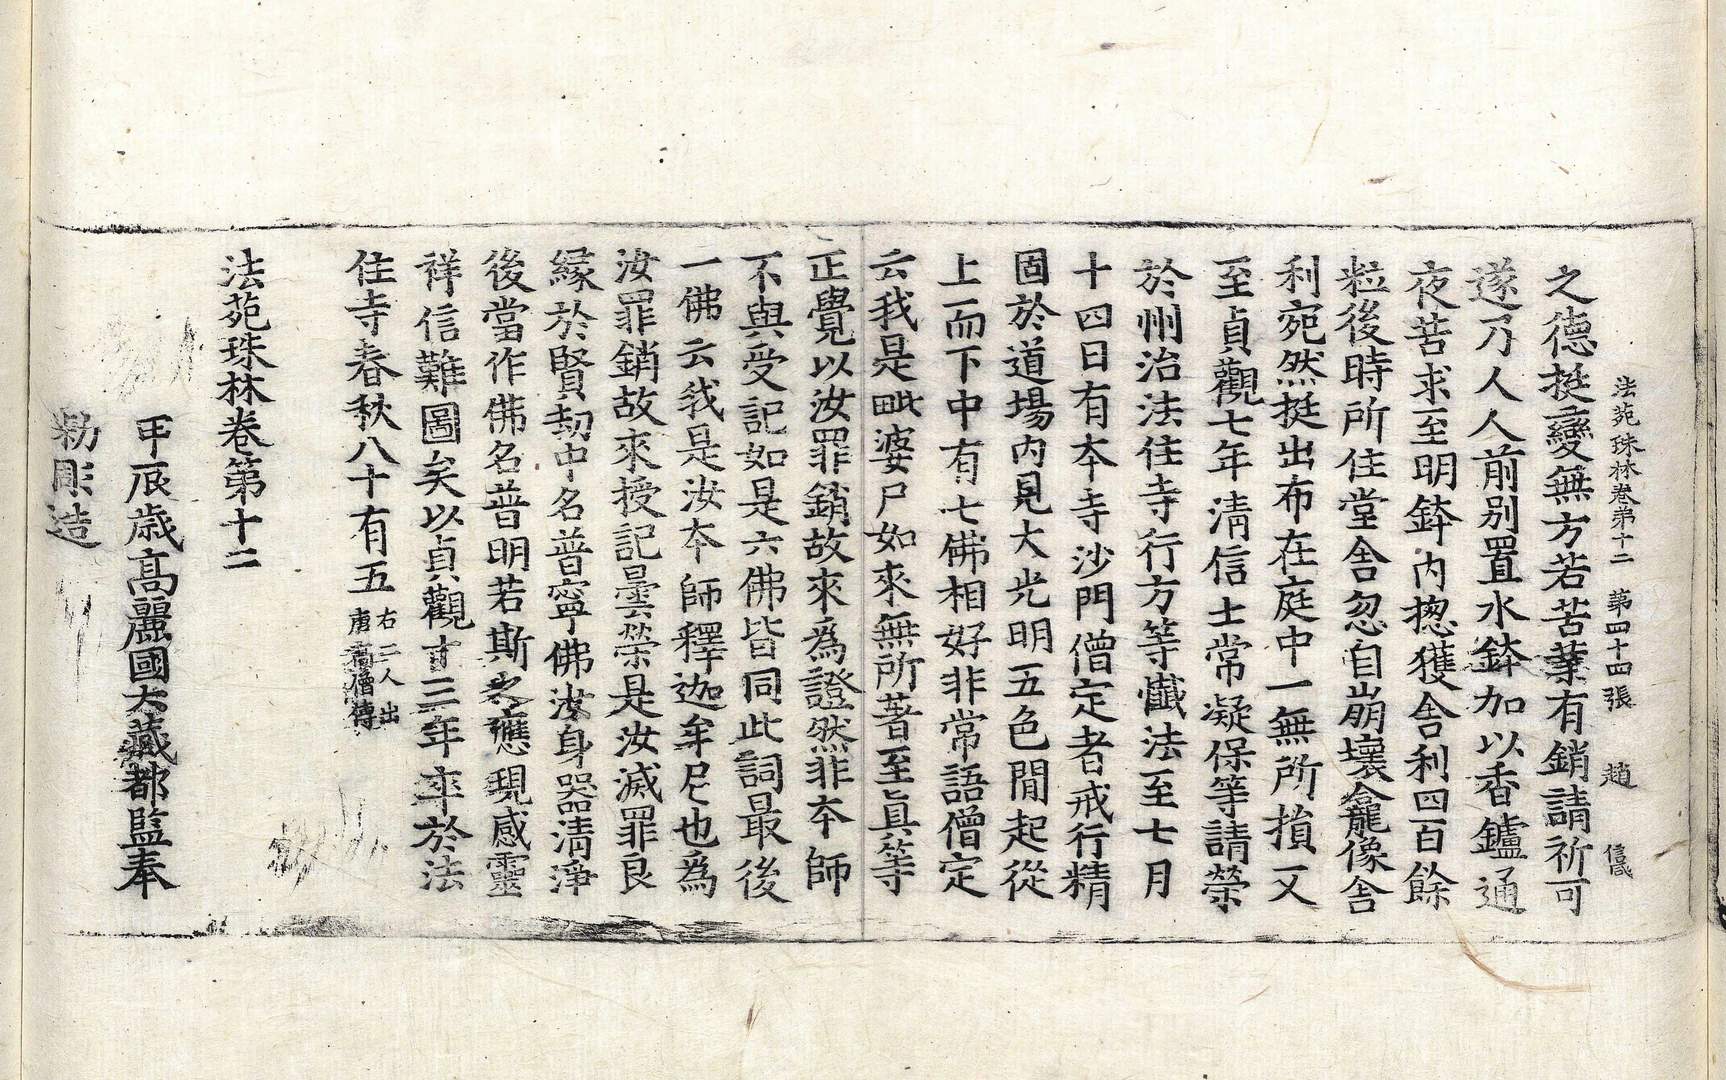 法苑珠林卷第十二 第四十四張 趙
之德挺變無方若苦業有銷請祈可
遂乃人人前别置水鉢加以香鑪通
夜苦求至明鉢内揔獲舍利四百餘
粒後時所住堂舍忽自崩壞龕像舍
利宛然挺出布在庭中一無所損又
至貞觀七年清信士常凝保等請榮
於州治法住寺行方等懺法至七月
十四日有夲寺沙門僧定者戒行精
固於道場内見大光明五色閒起從
上而下中有七佛相好非常語僧定
云我是毗婆尸如來無所著至眞等
正覺以汝罪銷故來爲證然非夲師
不與受記如是六佛皆同此詞最後
一佛云我是汝夲師釋迦牟尼也爲
汝罪銷故來授記曇榮是汝滅罪良
緣於賢劫中名普寧佛汝身器清淨
後當作佛名普明若斯之應現感靈
祥信難圖矣以貞觀十三年卒於法
住寺春秋八十有五 右二人出唐高僧傳
法苑珠林卷第十二
甲辰歲高麗國大藏都監奉
勑彫造